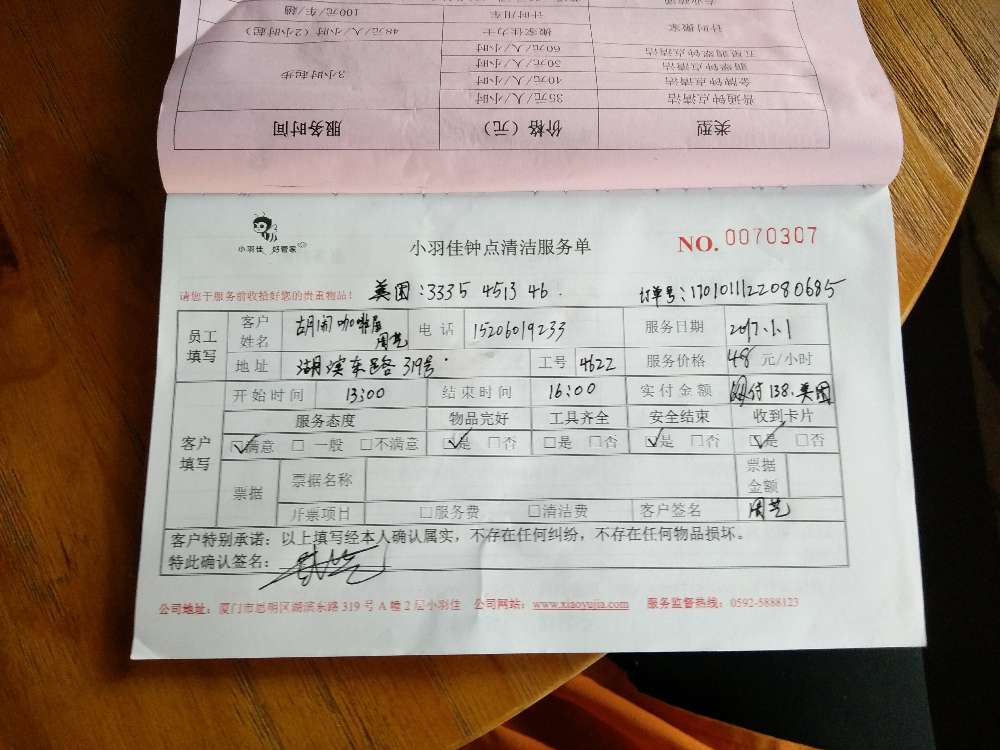 专业疏通
计时搬家 计时用车 100元/车/趟
搬家佳力士 48元/人/小时（2小时起）
五星钟点清洁 60元/人/小时
翡翠钟点清洁 50元/人/小时
金牌钟点清洁 40元/人/小时 3小时起步
普通钟点清洁 35元/人/小时
类型 价格（元） 服务时间
小羽佳 好管家
小羽佳钟点清洁服务单 NO. 0070307
请您于服务前收拾好您的贵重物品！ 美团：3335 4513 46. 订单号：1701011122080685
员工填写 客户姓名 胡闹咖啡屋 周艺 电话 15206019233 服务日期 2017.1.1
地址 湖滨东路319号 工号 4622 服务价格 48 元/小时
客户填写 开始时间 13:00 结束时间 16:00 实付金额 付138.美团
服务态度 物品完好 工具齐全 安全结束 收到卡片
☑满意 □一般 □不满意 ☑是 □否 □是 □否 ☑是 □否 ☑是 □否
票据 票据名称 票据金额
开票项目 □服务费 □清洁费 客户签名 周艺
客户特别承诺：以上填写经本人确认属实，不存在任何纠纷，不存在任何物品损坏。
特此确认签名：
公司地址：厦门市思明区湖滨东路 319 号 A 幢 2 层小羽佳 公司网站：www.xiaoyujia.com 服务监督热线：0592-5888123